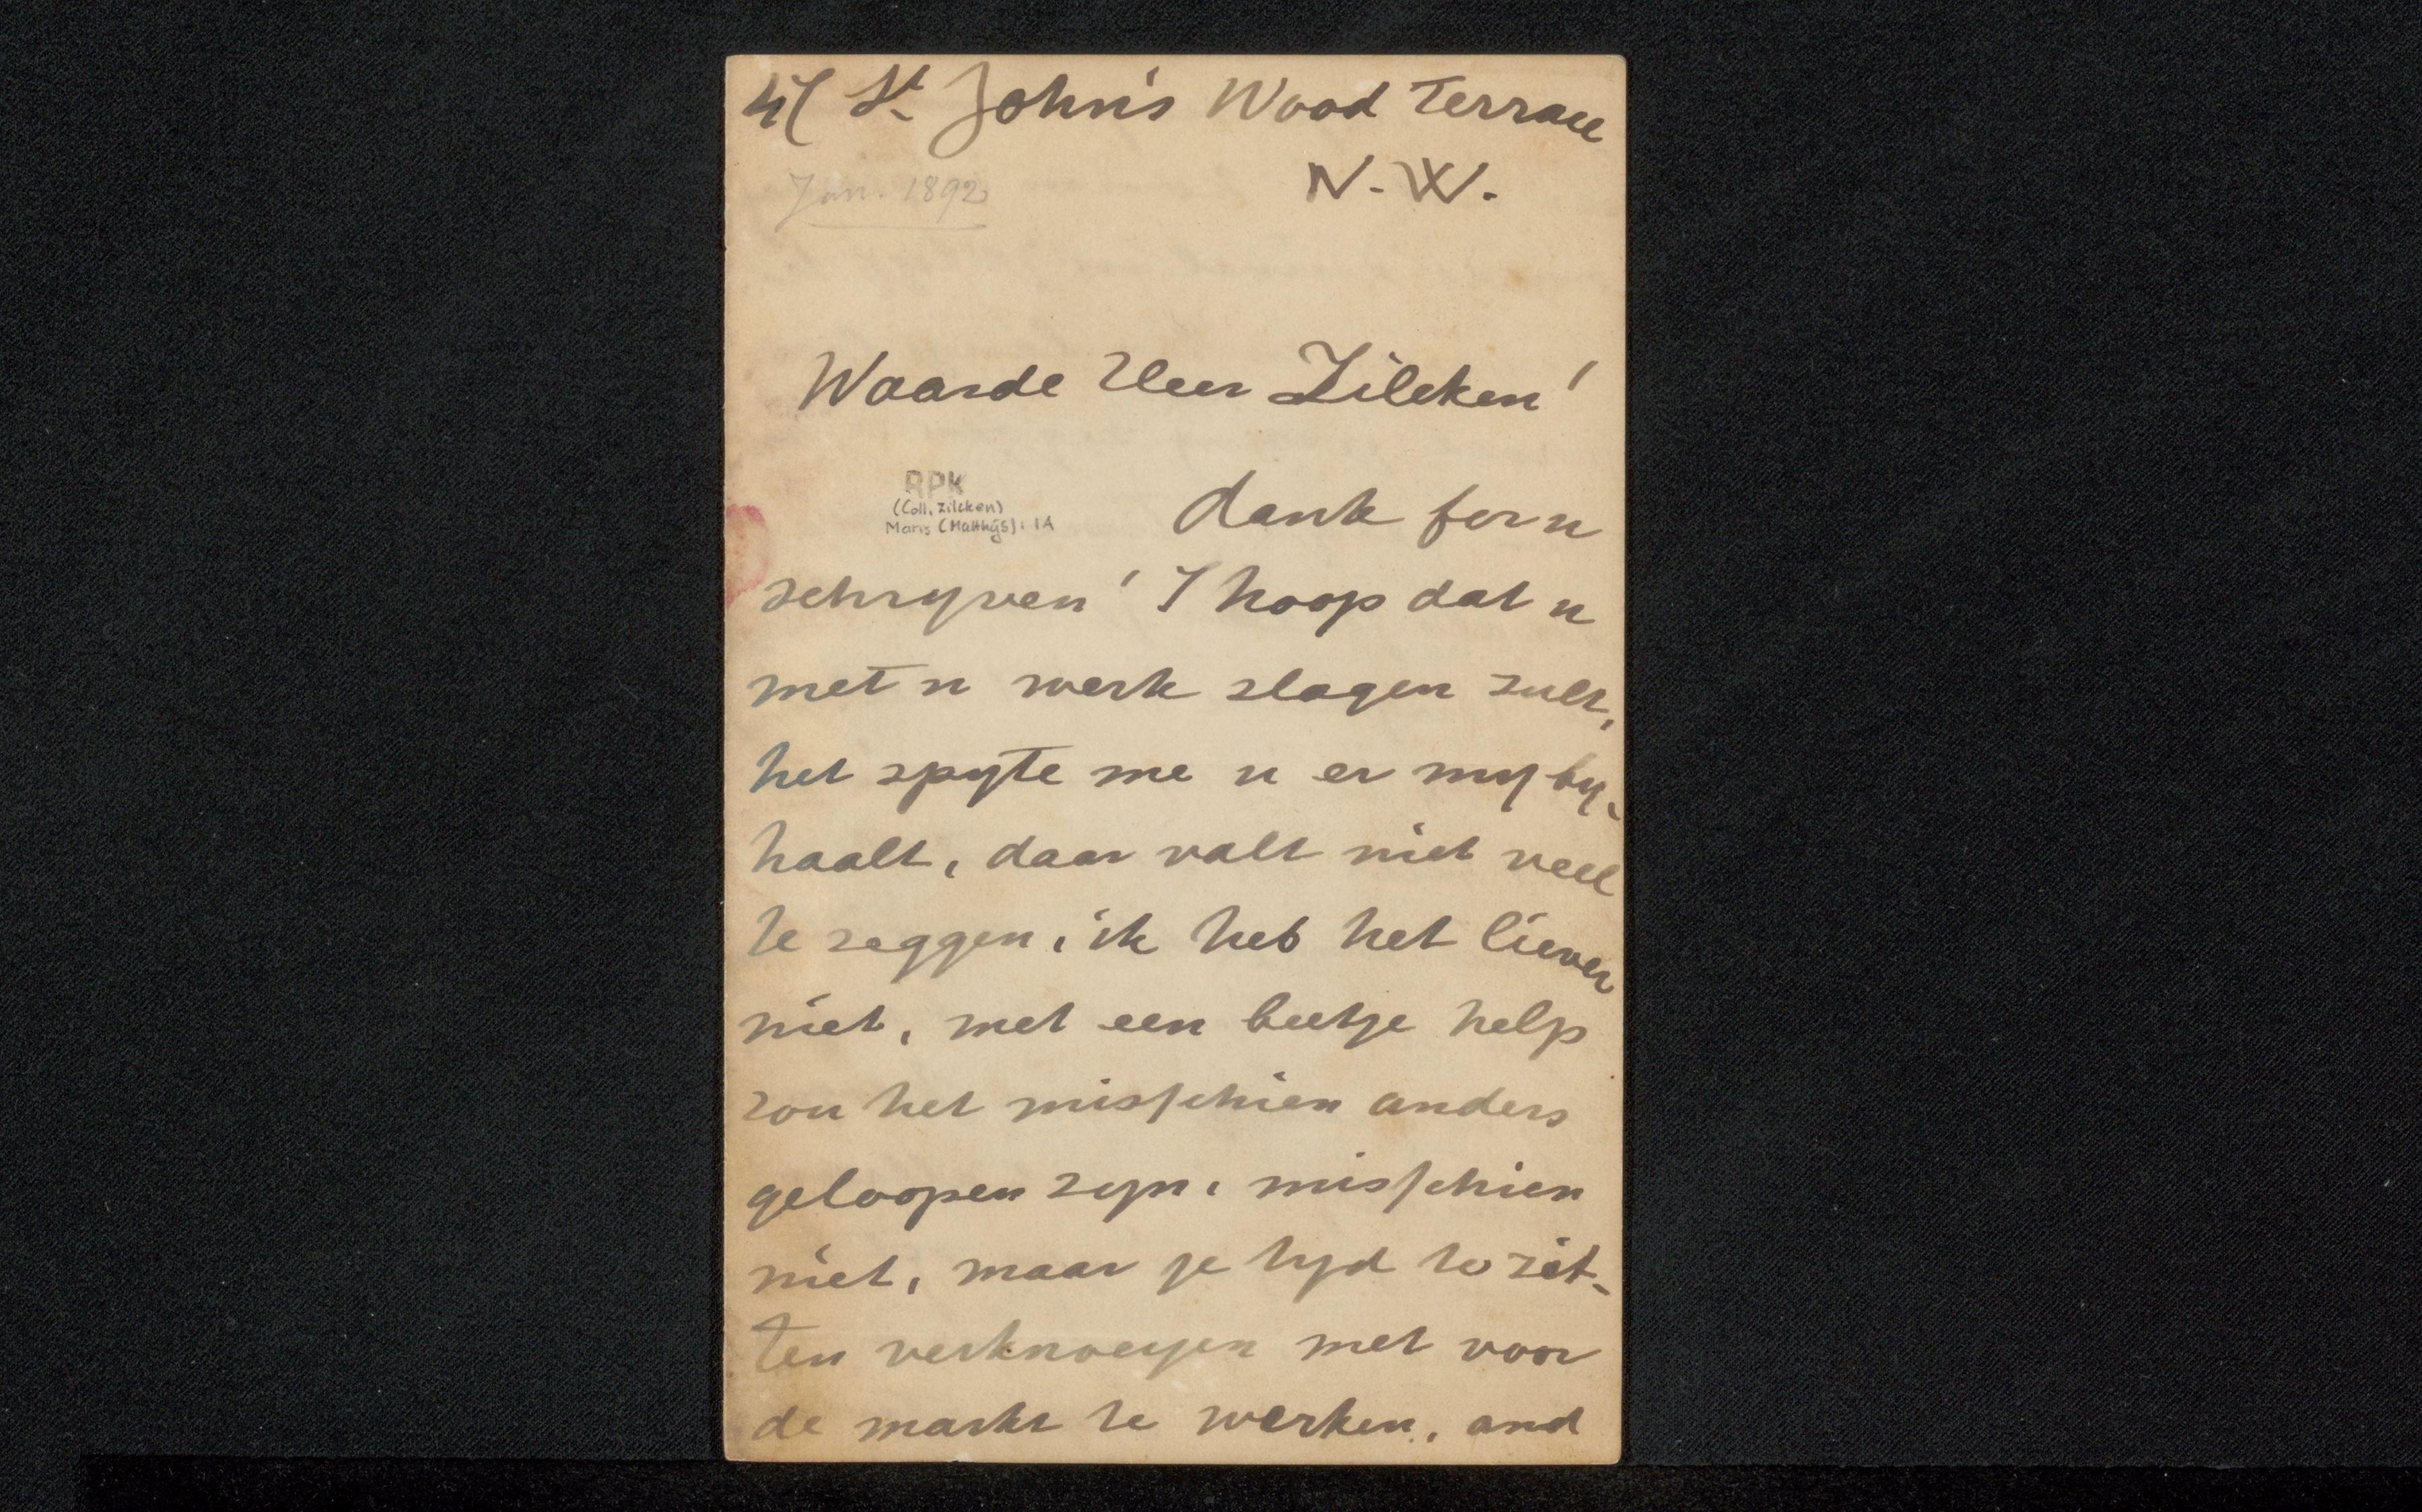 47 St. John's Wood Terrace
N.W.
Jan. 1892
Waarde Heer Zilcken!
RPK
(Coll. Zilcken)
Maris (Matthijs): 1A
dank for u
schryven! I hoop dat u
met u werk slagen zult,
het spyte me u er my by-
haalt, daar valt niet veel
te zeggen, ik heb het liever
niet, met een beetje help
zou het misschien anders
geloopen zyn, misschien
niet, maar je tyd to zit-
ten verknoeyen met voor
de markt te werken, and